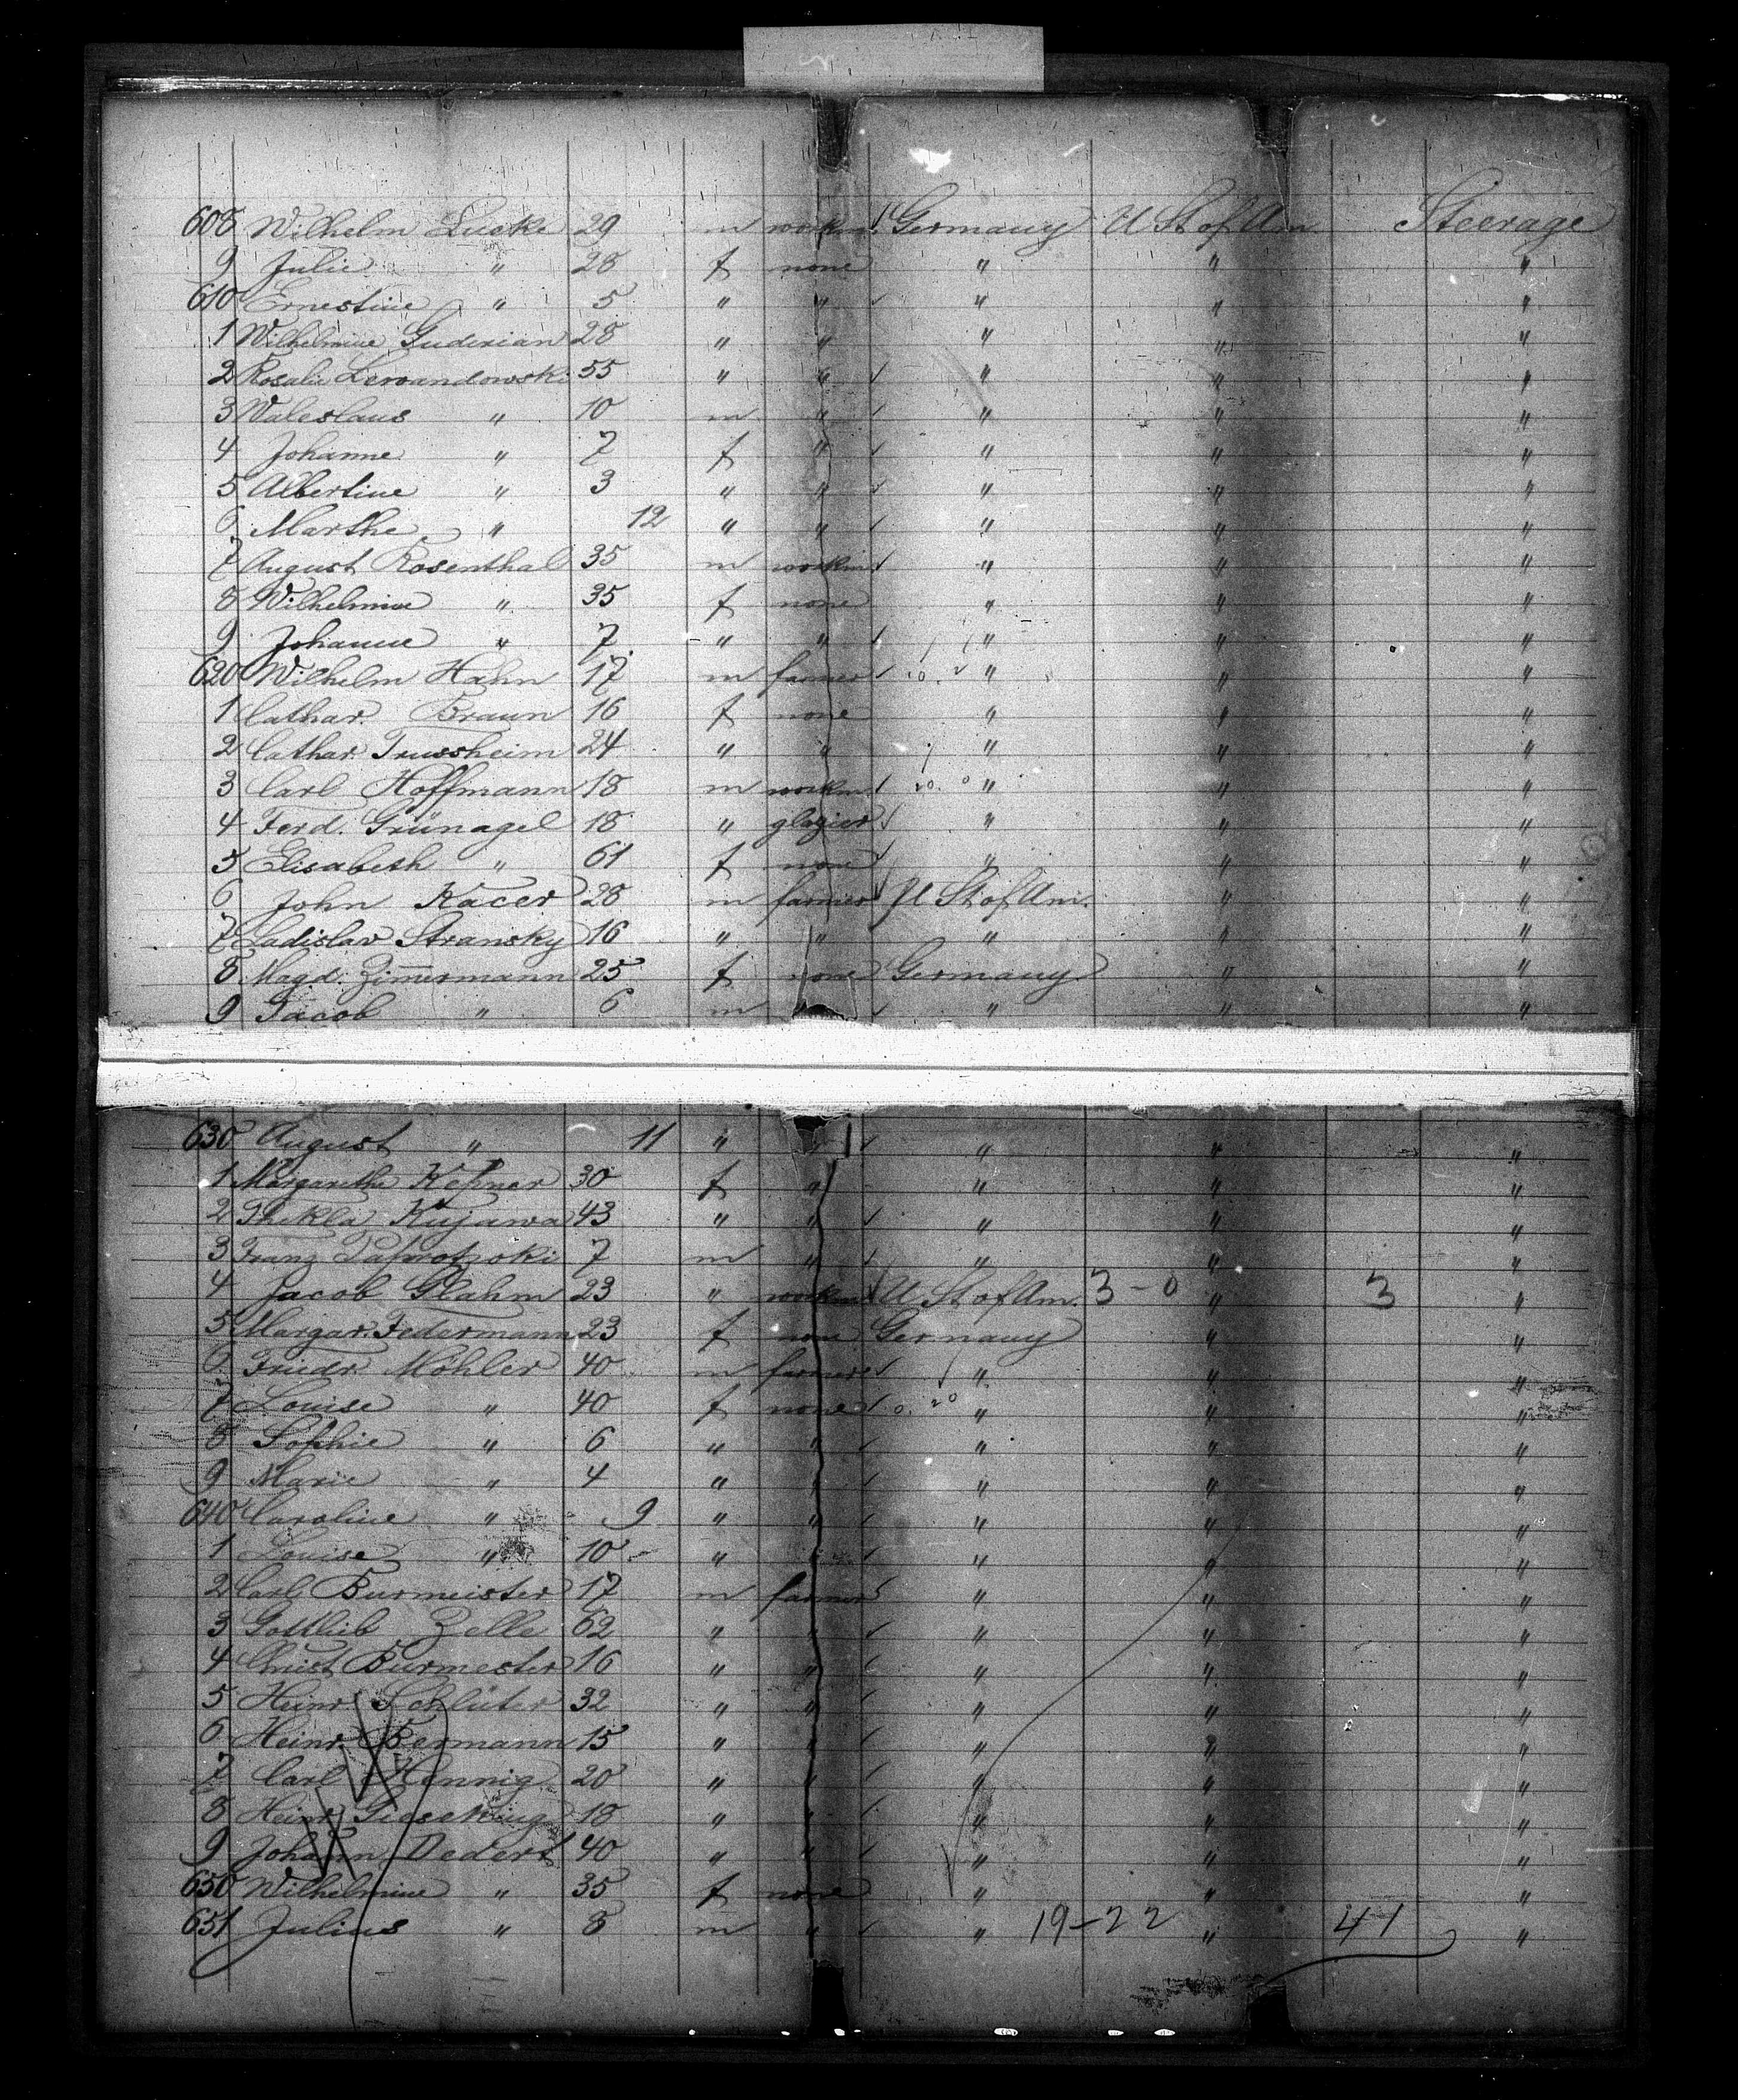 608 Wilhelm Luske 29 m workm. Germany U St of Am Steerage
9 Julie " 28 f none " " "
610 Ernestine " 5 " " " " "
1 Wilhelmine Guderian 28 " " " " "
2 Rosalie Lewandowski 55 " " " " "
3 Waleslaus " 10 m " " " "
4 Johanne " 7 f " " " "
5 Albertine " 3 " " " " "
6 Marthe " 12 " " " " "
7 August Rosenthal 35 m workm. " " "
8 Wilhelmine " 35 f none " " "
9 Johanne " 7 " " " " "
620 Wilhelm Hahn 17 m farmer " " "
1 Cathar. Braun 16 f none " " "
2 Cathar. 24 " " " " "
3 Carl Hoffmann 18 m workm. 20. 0 " " "
4 Ferd. Grünagel 18 " glazier " " "
5 Elisabeth " 61 f none " " "
6 John Kacer 28 m farmer U St of Am. " "
7 Ladislav Stransky 16 " " " " "
8 Magd. Zimmermann 25 f none Germany " "
9 Jacob " 6 m " " " "
630 August " 11 " " " " "
1 Margarethe 30 f " " " "
2 Thekla Kujawa 43 " " " " "
3 Franz 7 m " " " "
4 Jacob Glahm 23 " workm. U St of Am. 3-0 " 3 "
5 Margar. Federmann 23 f none Germany " "
6 Friedr. Möhler 40 m farmer " " "
7 Louise " 40 f none 0. 20 " " "
8 Sophie " 6 " " " " "
9 Marie " 4 " " " " "
640 Caroline " 9 " " " " "
1 Louise " 10 " " " " "
2 Carl Burmeister 17 m farmer " " "
3 Gottlieb Zelle 62 " " " " "
4 Christ Burmester 16 " " " " "
5 Heinr. Schlüter 32 " " " " "
6 Heinr. Bermann 15 " " " " "
7 Carl Hennig 20 " " " " "
8 Heinr. Gieseking 18 " " " " "
9 Johann Dedert 40 " " " " "
650 Wilhelmine " 35 f none " " "
651 Julius " 8 m " " 19-22 " 41 "